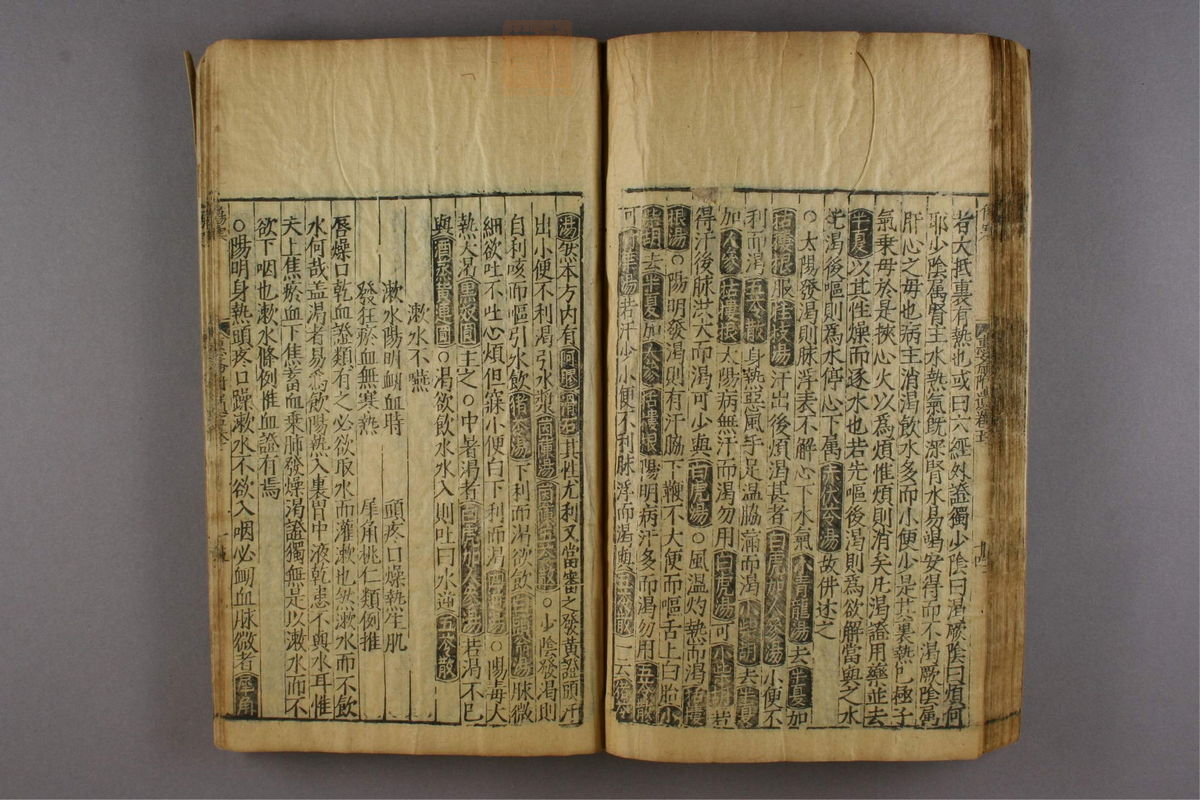 者大抵裏有熱也或曰六經外證獨少陰曰渴厥陰曰煩何
耶少陰属腎主水熱氣既深腎水易竭安得而不渴厥陰属
肝心之母也病主消渴飲水多而小便少是其裏熱已極子
氣乗母於是挾心火以為煩惟煩則消矣凡渴證用藥並去
半夏以其性燥而逐水也若先嘔後渴則為欲解當與之水
先渴後嘔則為水停心下属赤伏苓湯故併述之
○太陽發渴則脉浮表不解心下水氣小青龍湯去半夏加
括樓根服桂枝湯汗出後煩渴甚者白虎加人參湯小便不
利而渴五苓散身熱惡風手足温脇滿而渴小柴胡去半夏
加人參括樓根太陽病無汗而渴勿用白虎湯可小柴胡若
得汗後脉洪大而渴可少與白虎湯○風温灼熱而渴括樓
根湯○陽明發渴則有汗脇下鞕不大便而嘔舌上白胎小
柴胡去半夏加人參括樓根陽明病汗多而渴勿用五苓散
可竹葉湯若汗少小便不利脉浮而渴與五苓散一云猪苓
湯然本方内有阿膠滑石其性尤利又當審之發黄證頭汗
出小便不利渴引水漿茵蔯湯茵蔯五苓散○少陰發渴則
自利咳而嘔引水飲猪苓湯下利而渴欲飲白頭翁湯脉微
細欲吐不吐心煩但寐小便白下利而渴○陽毒大
熱大渴黑奴圓主之○中暑渴者白虎加人參湯若渴不已
與酒蒸黄連圓○渴欲飲水水入則吐曰水逆五苓散
漱水不嚥
漱水陽明衂血時　頭疼口燥熱生肌
發狂瘀血無寒熱　犀角桃仁類例推
唇燥口乾血證類有之必欲取水而灌漱也然漱水而不飲
水何哉盖渴者易為飲陽熱入裏胃中液乾患不與水耳惟
夫上焦瘀血下焦蓄血乗肺發燥渴證獨無是以漱水而不
欲下咽也漱水條例惟血證有焉
○陽明身熱頭疼口躁漱水不欲入咽必衂血脉微者犀角